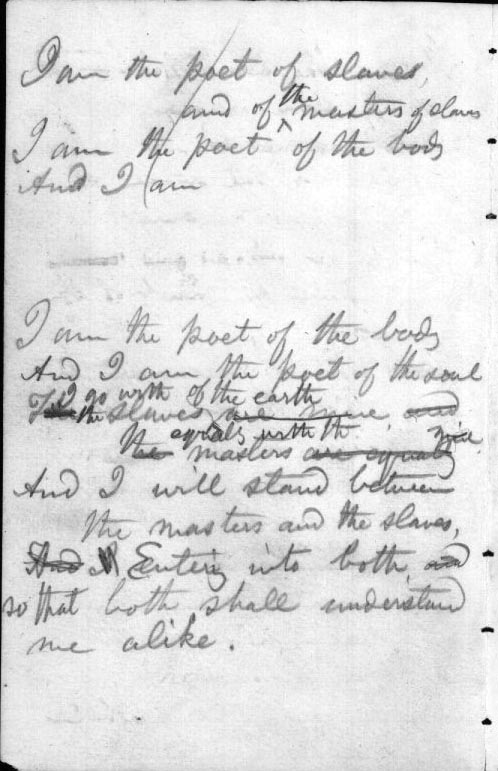 I am the poet of slaves,
and of the masters of slaves
I am the poet of the body
And I am
I am the poet of the body
And I am the poet of the soul
I go with the slaves of the earth are mine, and
equals with the
the masters are equally
And I will stand between
the masters and the slaves,
And I Entering into both, and
so that both shall understand
me alike.